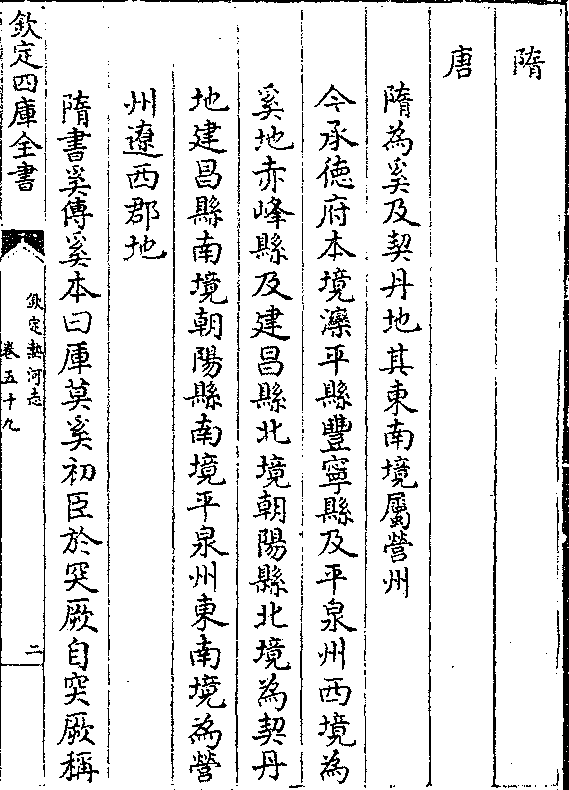 隋
唐
隋為奚及契丹地其東南境屬營州
今承徳府本境灤平縣豐寧縣及平泉州西境為
奚地赤峰縣及建昌縣北境朝陽縣北境為契丹
地建昌縣南境朝陽縣南境平泉州東南境為營
州遼西郡地
隋書奚傳奚本曰厙莫奚初臣於突厥自突厥稱
欽定四庫全書
欽定熱河志
卷五十九
二